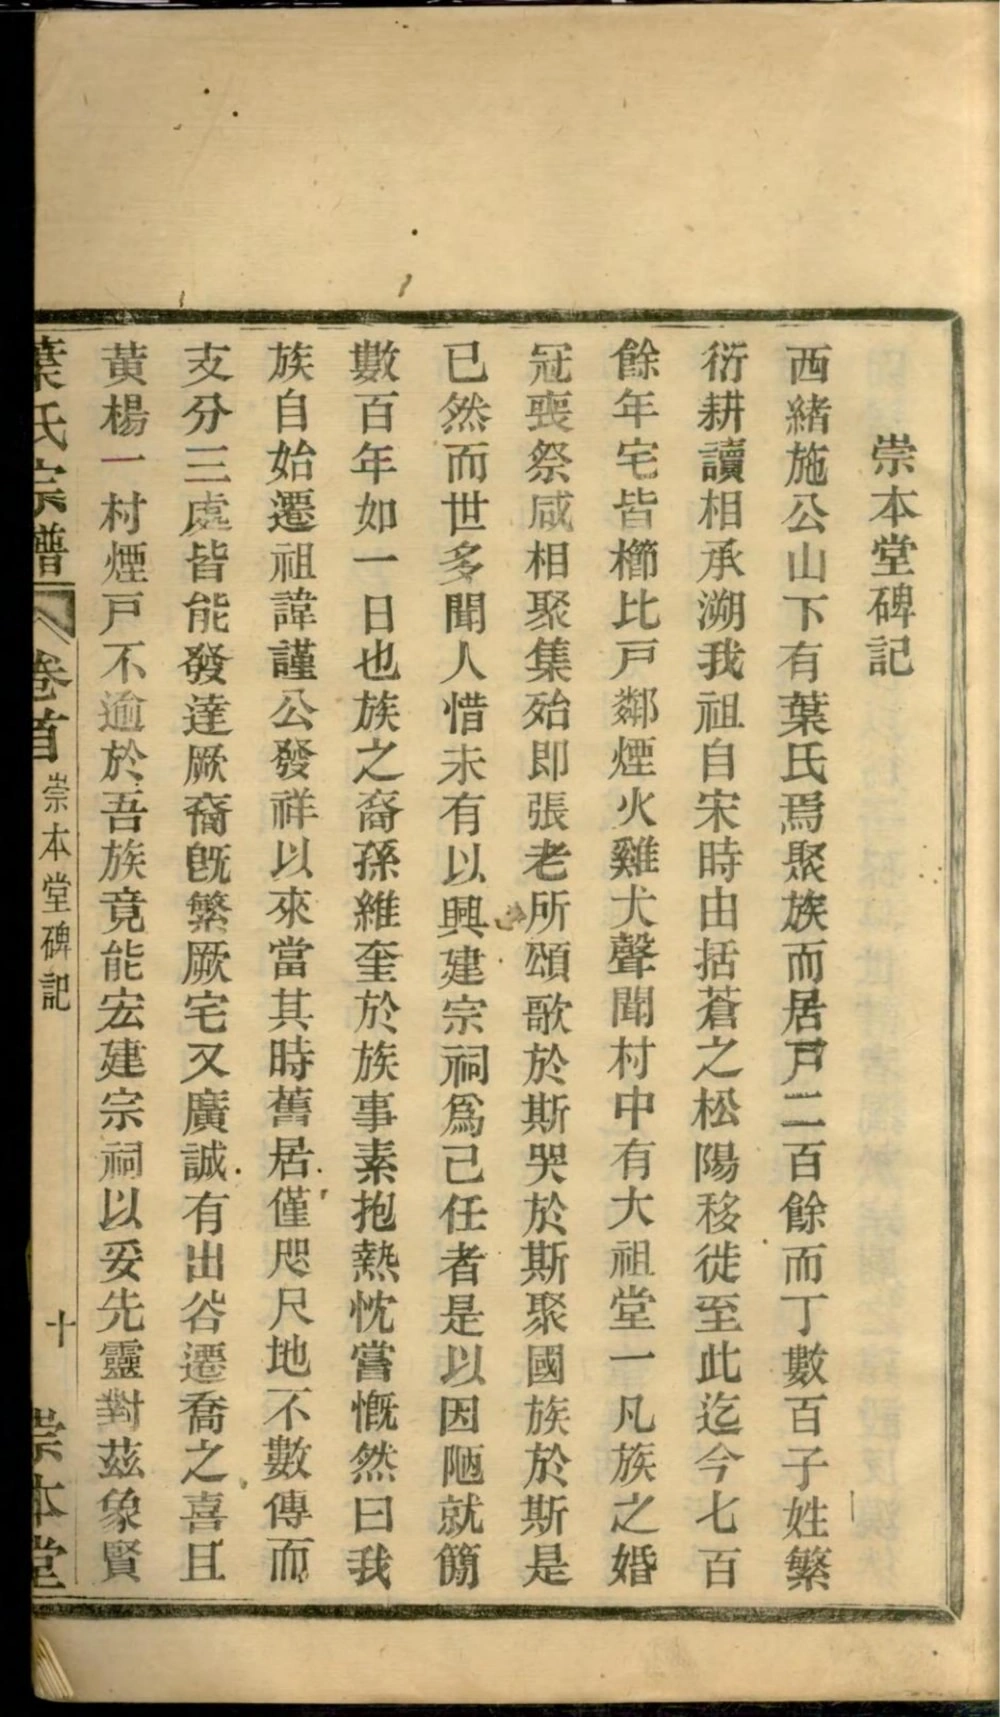 崇本堂碑記
西緒施公山下有葉氏焉聚族而居戸二百餘而丁數百子姓繁
衍耕讀相承溯我祖自宋時由括蒼之松陽移徙至此迄今七百
餘年宅皆櫛比戸鄰煙火雞犬聲聞村中有大祖堂一凡族之婚
冠喪祭咸相聚集殆即張老所頌歌於斯哭於斯聚國族於斯是
已然而世多聞人惜未有以興建宗祠爲己任者是以因陋就簡
數百年如一日也族之裔孫維奎於族事素抱熱忱嘗慨然曰我
族自始遷祖諱謹公發祥以來當其時舊居僅咫尺地不數傳而
支分三處皆能發達厥裔旣繁厥宅又廣誠有出谷遷喬之喜且
黃楊一村煙戸不逾於吾族竟能宏建宗祠以妥先靈對茲象賢
葉氏宗譜 卷首 崇本堂碑記 十 崇本堂